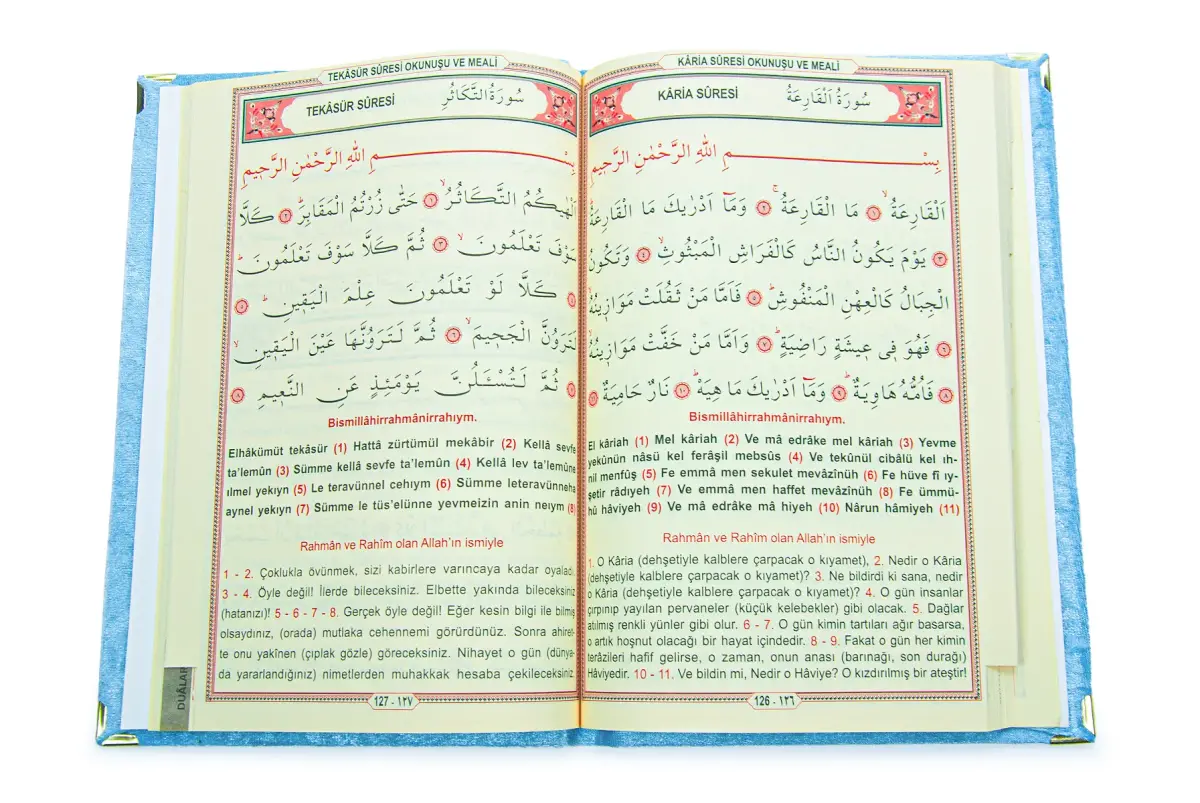 KÂRİA SÛRESİ OKUNUŞU VE MEALİ
KÂRİA SÛRESİ سُورَةُ الْقَارِعَةُ
بِسْمِ اللّٰهِ الرَّحْمٰنِ الرَّح۪يمِ
اَلْقَارِعَةُۙ ﴿١﴾ مَا الْقَارِعَةُۚ ﴿٢﴾ وَمَٓا اَدْرٰيكَ مَا الْقَارِعَةُۜ
﴿٣﴾ يَوْمَ يَكُونُ النَّاسُ كَالْفَرَاشِ الْمَبْثُوثِۙ ﴿٤﴾ وَتَكُونُ
الْجِبَالُ كَالْعِهْنِ الْمَنْفُوشِۜ ﴿٥﴾ فَاَمَّا مَنْ ثَقُلَتْ مَوَاز۪ينُهُۙ
﴿٦﴾ فَهُوَ ف۪ي ع۪يشَةٍ رَاضِيَةٍۜ ﴿٧﴾ وَاَمَّا مَنْ خَفَّتْ مَوَاز۪ينُهُۙ
﴿٨﴾ فَاُمُّهُ هَاوِيَةٌۜ ﴿٩﴾ وَمَٓا اَدْرٰيكَ مَا هِيَهْۜ ﴿١٠﴾ نَارٌ حَامِيَةٌ ﴿١١﴾
Bismillâhirrahmânirrahıym.
El kâriah (1) Mel kâriah (2) Ve mâ edrâke mel kâriah (3) Yevme
yekûnün nâsü kel ferâşil mebsûs (4) Ve tekûnül cibâlü kel ıh-
nil menfûş (5) Fe emmâ men sekulet mevâzînüh (6) Fe hüve fî ıy-
şetir râdıyeh (7) Ve emmâ men haffet mevâzînüh (8) Fe ümmü-
hû hâviyeh (9) Ve mâ edrâke mâ hiyeh (10) Nârun hâmiyeh (11)
Rahmân ve Rahîm olan Allah'ın ismiyle
1. O Kâria (dehşetiyle kalblere çarpacak o kıyamet), 2. Nedir o Kâria
(dehşetiyle kalblere çarpacak o kıyamet)? 3. Ne bildirdi ki sana, nedir
o Kâria (dehşetiyle kalblere çarpacak o kıyamet)? 4. O gün insanlar
çırpınıp yayılan pervaneler (küçük kelebekler) gibi olacak. 5. Dağlar
atılmış renkli yünler gibi olur. 6 - 7. O gün kimin tartıları ağır basarsa,
o artık hoşnut olacağı bir hayat içindedir. 8 - 9. Fakat o gün her kimin
terâzileri hafif gelirse, o zaman, onun anası (barınağı, son durağı)
Hâviyedir. 10 - 11. Ve bildin mi, Nedir o Hâviye? O kızdırılmış bir ateştir!
126 - ١٢٦
TEKÂSÜR SÛRESİ OKUNUŞU VE MEALİ
TEKÂSÜR SÛRESİ سُورَةُ التَّكَاثُرِ
بِسْمِ اللّٰهِ الرَّحْمٰنِ الرَّح۪يمِ
اَلْهٰيكُمُ التَّكَاثُرُۙ ﴿١﴾ حَتّٰى زُرْتُمُ الْمَقَابِرَۜ ﴿٢﴾ كَلَّا
سَوْفَ تَعْلَمُونَۙ ﴿٣﴾ ثُمَّ كَلَّا سَوْفَ تَعْلَمُونَۜ
﴿٤﴾ كَلَّا لَوْ تَعْلَمُونَ عِلْمَ الْيَق۪ينِۜ ﴿٥﴾
لَتَرَوُنَّ الْجَح۪يمَۙ ﴿٦﴾ ثُمَّ لَتَرَوُنَّهَا عَيْنَ الْيَق۪ينِۙ
﴿٧﴾ ثُمَّ لَتُسْـَٔلُنَّ يَوْمَئِذٍ عَنِ النَّع۪يمِ ﴿٨﴾
Bismillâhirrahmânirrahıym.
Elhâkümüt tekâsür (1) Hattâ zürtümül mekâbir (2) Kellâ sevfe
ta'lemûn (3) Sümme kellâ sevfe ta'lemûn (4) Kellâ lev ta'lemûne
ılmel yekıyn (5) Le teravünnel cehıym (6) Sümme leteravünneha
aynel yekıyn (7) Sümme le tüs'elünne yevmeizin anin neıym (8)
Rahmân ve Rahîm olan Allah'ın ismiyle
1 - 2. Çoklukla övünmek, sizi kabirlere varıncaya kadar oyaladı.
3 - 4. Öyle değil! İlerde bileceksiniz. Elbette yakında bileceksiniz
(hatanızı)! 5 - 6 - 7 - 8. Gerçek öyle değil! Eğer kesin bilgi ile bilmiş
olsaydınız, (orada) mutlaka cehennemi görürdünüz. Sonra ahiret-
te onu yakînen (çıplak gözle) göreceksiniz. Nihayet o gün (dünya-
da yararlandığınız) nimetlerden muhakkak hesaba çekileceksiniz.
127 - ١٢٧
DUÂLAR